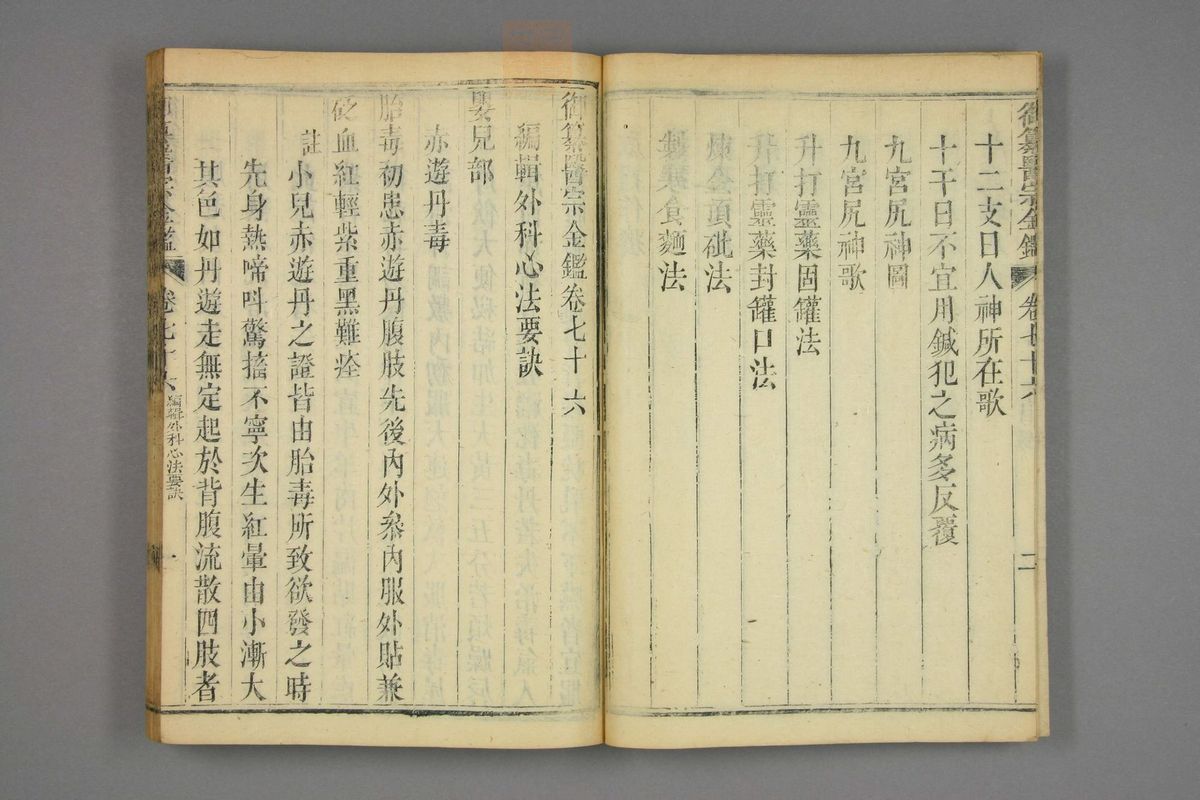 御纂醫宗金鑑 卷七十六 二
十二支日人神所在歌
十干日不宜用鍼犯之病多反覆
九宮尻神圖
九宮尻神歌
升打靈藥固罐法
升打靈藥封罐口法
煉金頂砒法
製寒食麵法
御纂醫宗金鑑卷七十六
編輯外科心法要訣
嬰兒部
赤遊丹毒
胎毒初患赤遊丹腹肢先後內外參內服外貼兼
砭血紅輕紫重黑難痊
註小兒赤遊丹之證皆由胎毒所致欲發之時
先身熱啼叫驚搐不寧次生紅暈由小漸大
其色如丹遊走無定起於背腹流散四肢者
卷七十六 編輯外科心法要訣 一